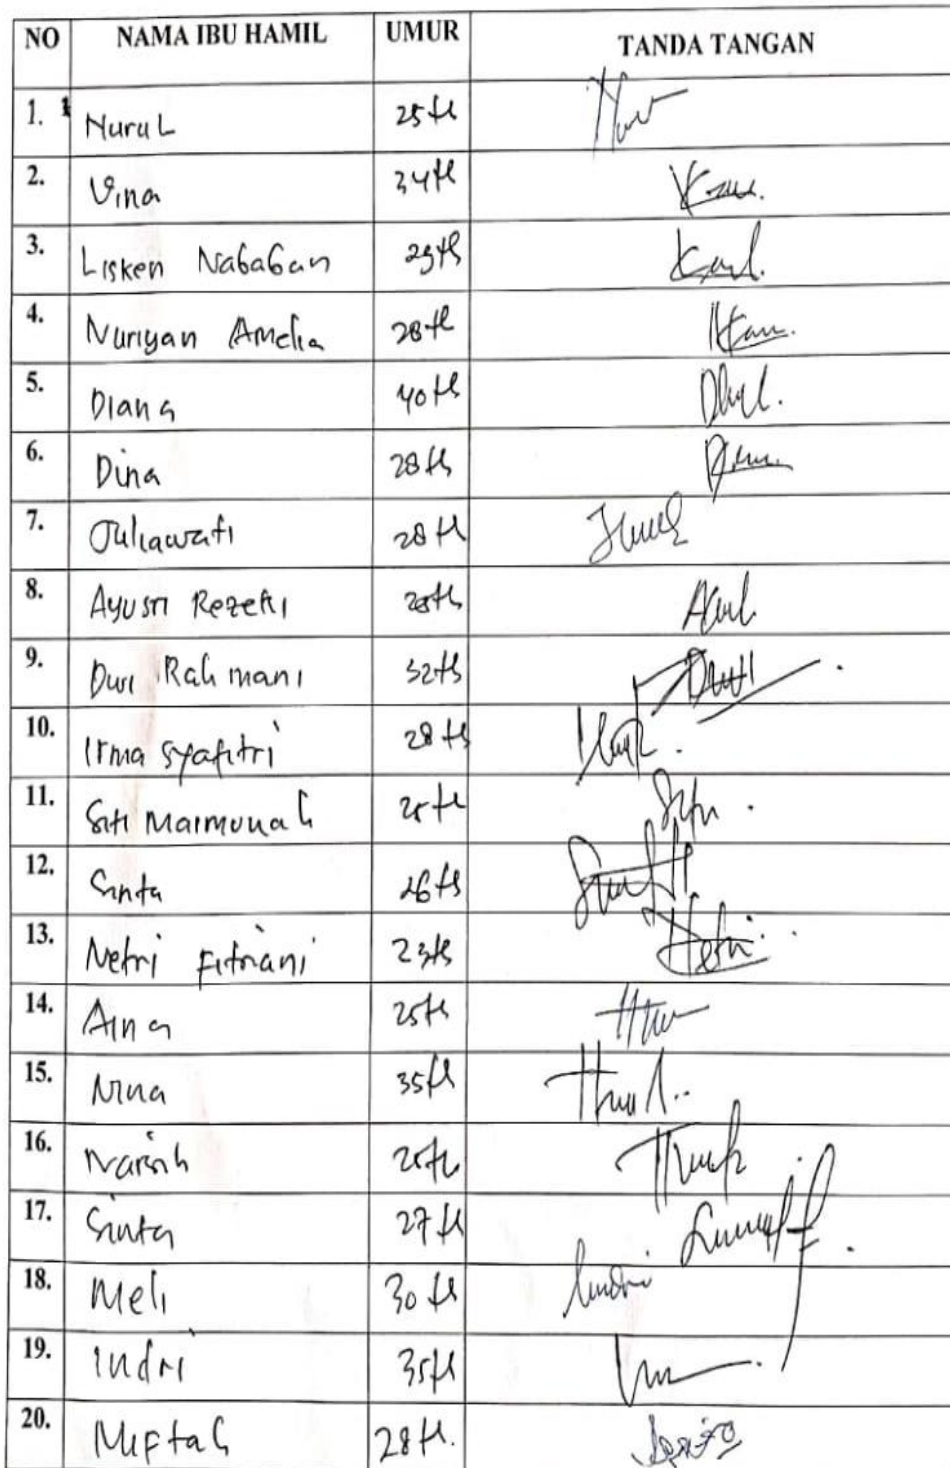 NO NAMA IBU HAMIL UMUR TANDA TANGAN
1. Nurul 25 th
2. Vina 34 th
3. Lisken Nababan 29 th
4. Nuriyan Amelia 28 th
5. Diana 40 th
6. Dina 28 th
7. Juliawati 28 th
8. Ayusri Rezeki
9. Dwi Rahmani 32 th Dwi
10. Irma Syafitri 28 th
11. Siti Maimunah 25 th
12. Santa 26 th
13. Netri Fitriani 23 th
14. Aina 25 th
15. Nina 35 th
16. 25 th
17. Sinta 27 th
18. Meli 30 th
19. Indri 35 th
20. Miftah 28 th.